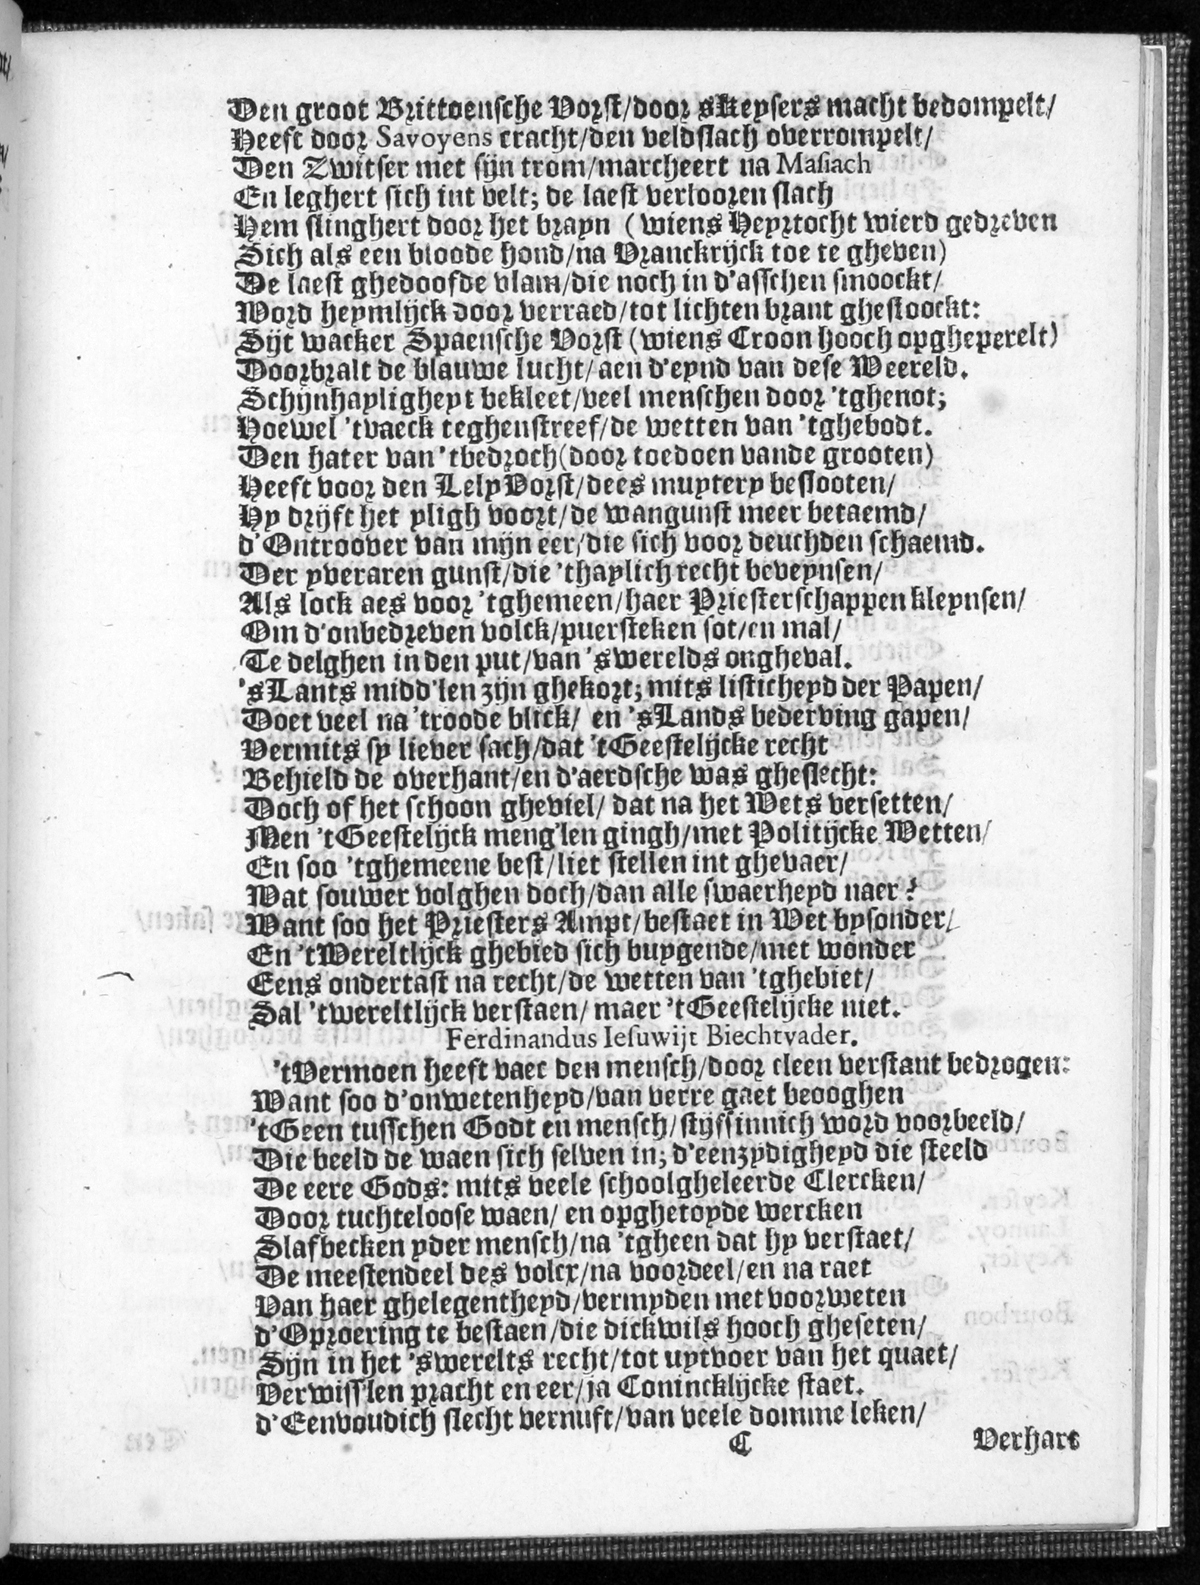 Den groot Brittoensche Vorst/door sKeysers macht bedompelt/
Heeft door Savoyens cracht/den veldslach overrompelt/
Den Zwitser met sijn trom/marcheert na Masiach
En leghert sich int velt; de laest verlooren slach
Hem slinghert door het brayn (wiens Heyrtocht wierd gedreven
Sich als een bloode hond/na Vranckrijck toe te gheven)
De laest ghedoofde vlam/die noch in d'asschen smoockt/
Word heymlijck door verraed/tot lichten brant ghestoockt:
Sijt wacker Spaensche Vorst (wiens Croon hooch opgheperelt)
Doorbralt de blauwe lucht/aen d'eynd van dese Weereld.
Schijnhayligheyt bekleet/veel menschen door 'tghenot;
Hoewel 'tvaeck teghenstreef/de wetten van 'tghebodt.
Den hater van 'tbedroch (door toedoen vande grooten)
Heeft voor den LelyVorst/dees muytery beslooten/
Hy drijft het yligh voort/de wangunst meer betaemd/
d'Ontroover van mijn eer/die sich voor deuchden schaemd.
Der yveraren gunst/die 'thaylich recht beveynsen/
Als lock aes voor 'tghemeen/haer Priesterschappen kleynsen/
Om d'onbedreven volck/puersteken sot/en mal/
Te delghen in den put/van 'swerelds ongheval.
'sLants midd'len zijn ghekort; mits listicheyd der Papen/
Doet veel na 'troode blick/ en 'sLands bederving gapen/
Vermits sy liever sach/dat 't Geestelijcke recht
Behield de overhant/en d'aerdsche was gheslecht:
Doch of het schoon gheviel/ dat na het Wets versetten/
Men 't Geestelijck meng'len gingh/met Politijcke Wetten/
En soo 'tghemeene best/liet stellen int ghevaer/
Wat souwer volghen doch/dan alle swaerheyd naer?
Want soo het Priesters Ampt/bestaet in Wet bysonder/
En 't Wereltlijck ghebied sich buygende/met wonder
Eens ondertast na recht/de wetten van 'tghebiet/
Sal 'twereltlijck verstaen/ maer 't Geestelijcke niet.
Ferdinandus Iesuwijt Biechtvader.
't Vermoen heeft vaec den mensch/door cleen verstant bedrogen:
Want soo d'onwetenheyd/van verre gaet beooghen
't Geen tusschen Godt en mensch/stijfsinnich word voorbeeld/
Die beeld de waen sich selven in; d'eenzydigheyd die steeld
De eere Gods: mits veele schoolgheleerde Clercken/
Door tuchteloose waen/ en opghetoyde wercken
Slafbecken yder mensch/na 'tgheen dat hy verstaet/
De meestendeel des volcx/na voordeel/en na raet
Van haer ghelegentheyd/vermyden met voorweten
d'Oproering te bestaen/die dickwils hooch gheseten/
Sijn in het 'swerelts recht/tot uytvoer van het quaet/
Verwiss'len pracht en eer/ja Conincklijcke staet.
d'Eenvoudich slecht vernuft/van veele domme leken/
C
Verhart